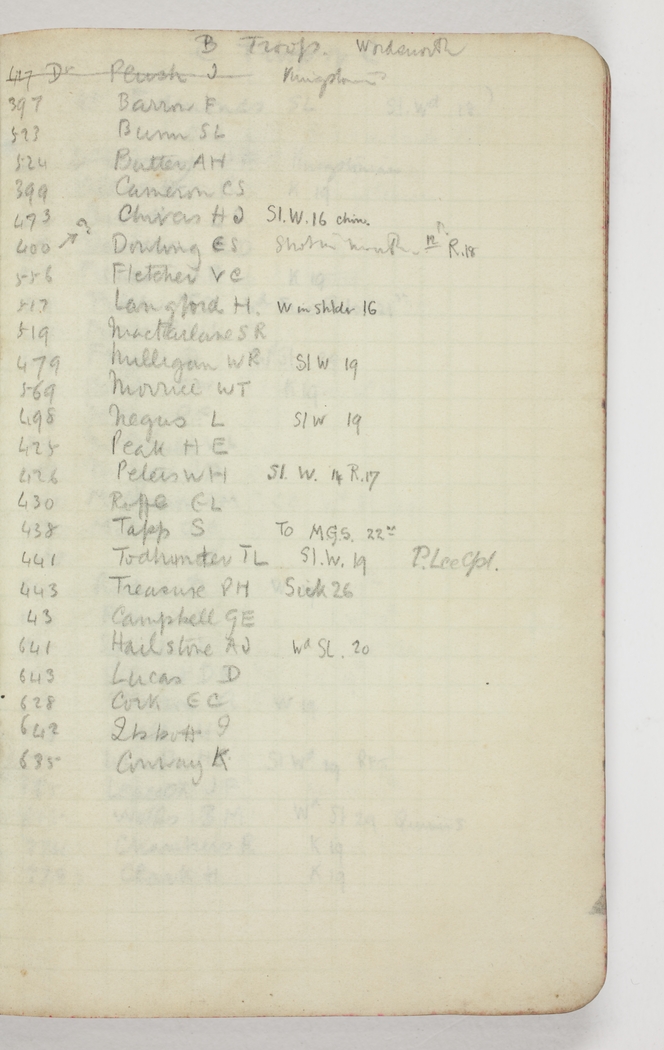 B Troop. Wordsworth
427 Dr Plush J
397 Barron F
523 Bunn SL
524 Butler AH
399 Cameron CS
473 Chivas HJ Sl.W.16 chin.
400 Dowling ES Shot in mouth. R.18
556 Fletcher VC
517 Langford H. W in shldr 16
519 Macfarlane SR
479 Milligan WR Sl W 19
569 Morrice WT
498 Negus L Sl W 19
425 Peak H E
426 Peters WH Sl. W. R.17
430 EL
438 Tapp S To M.G.S. 22nd
441 Todhunter TL Sl.W. 19 P.Lee Cpl.
443 Treasure PH Sick 26
43 Campbell GE
641 Hailstone AJ Wd SL. 20
643 Lucas D
628 Cork EC
642 Ibbott J
635 Conway K